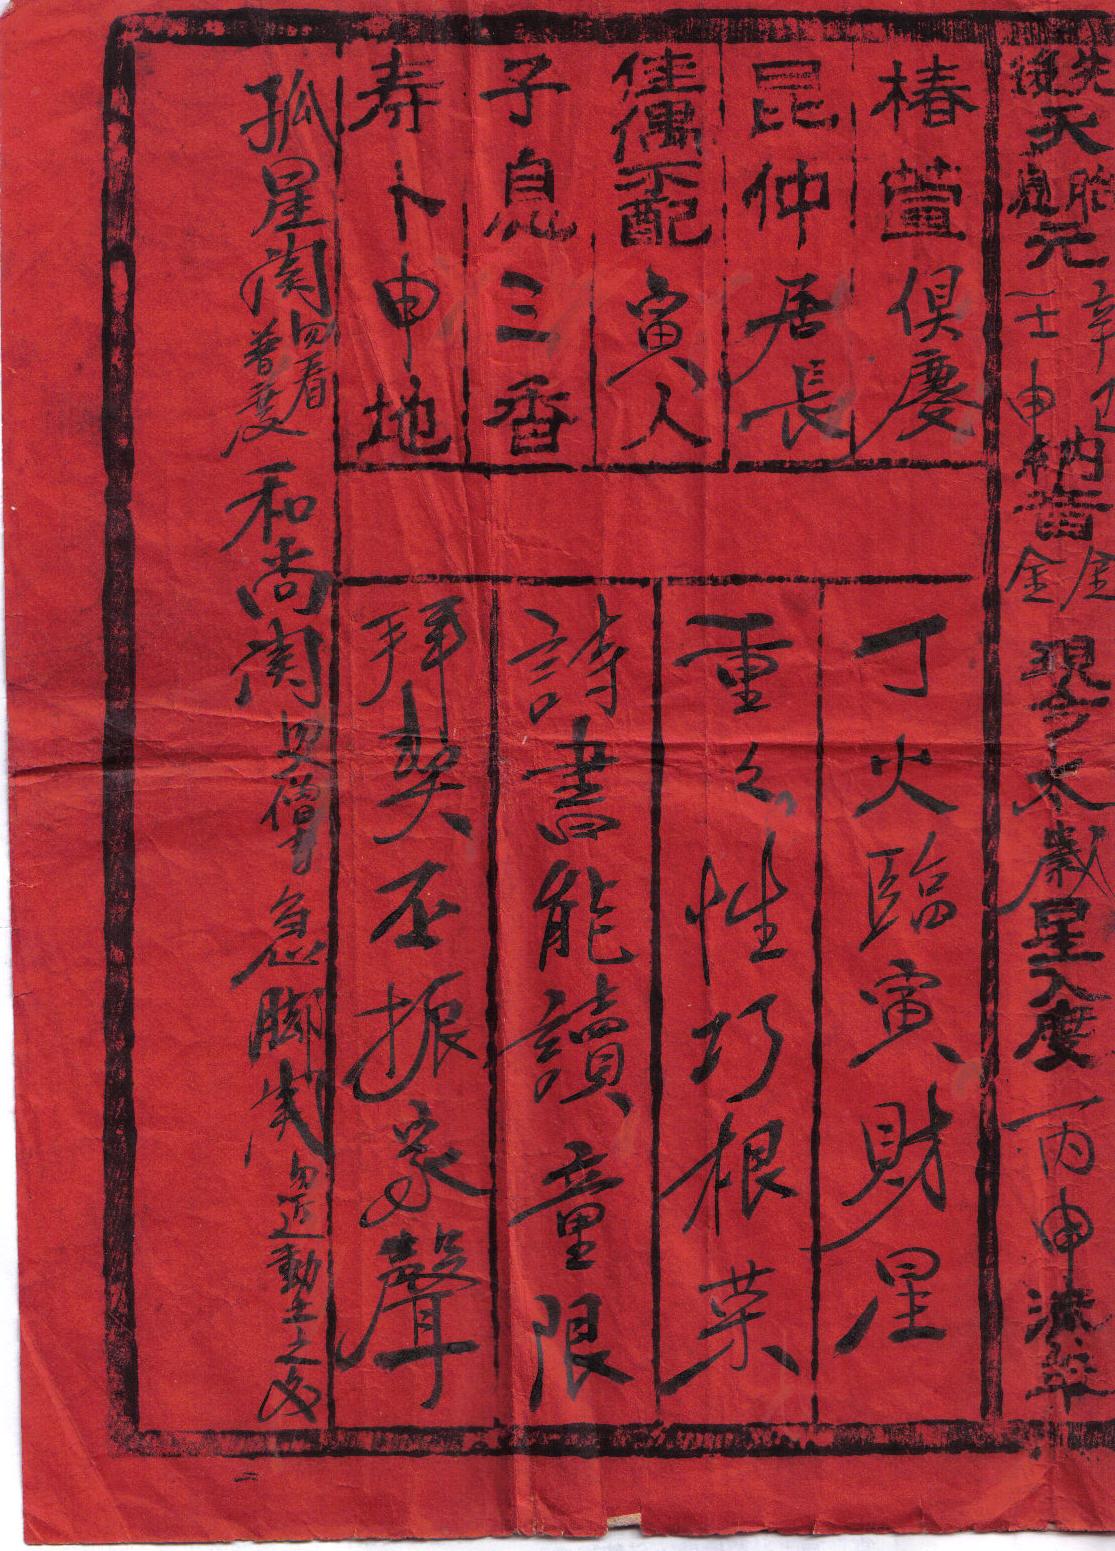 先天胎元辛巳納音金
後天息元壬申納音金
現今太歲星入度丙申流年
椿萱俱慶
昆仲居長
佳偶配寅人
子息三香
寿卜申地
丁火臨寅財星
重々性巧根菜
詩書能讀童限
拜契丕振家聲
孤星関勿看普度
和尚関
急脚関勿近動土之